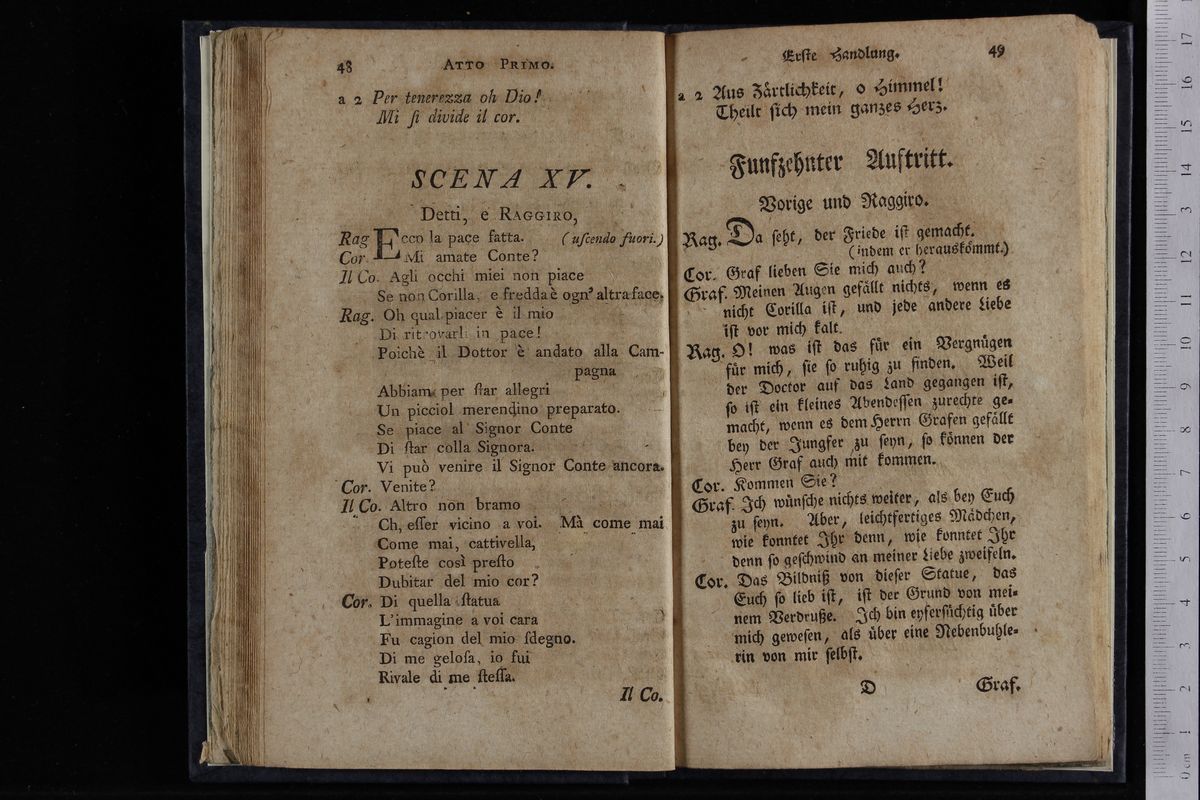 48 ATTO PRIMO.
a 2 Per tenerezza oh Dio!
Mi ſi divide il cor.
SCENA XV.
Detti, e RAGGIRO,
Rag Ecco la pace fatta. (uſcendo fuori.)
Cor. Mi amate Conte?
Il Co. Agli occhi miei non piace
Se non Corilla, e fredda è ogn' altra face.
Rag. Oh qual piacer è il mio
Di ritrovarli in pace!
Poichè il Dottor è andato alla Cam-
pagna
Abbiam per ſtar allegri
Un picciol merendino preparato.
Se piace al Signor Conte
Di ſtar colla Signora.
Vi può venire il Signor Conte ancora.
Cor. Venite?
Il Co. Altro non bramo
Ch, eſſer vicino a voi. Mà come mai
Come mai, cattivella,
Poteſte così preſto
Dubitar del mio cor?
Cor. Di quella ſtatua
L'immagine a voi cara
Fu cagion del mio ſdegno.
Di me geloſa, io fui
Rivale di me ſteſſa.
Il Co.
Erſte Handlung. 49
a 2 Aus Zärtlichkeit, o Himmel!
Theilt ſich mein ganzes Herz.
Funfzehnter Auftritt.
Vorige und Raggiro.
Rag. Da ſeht, der Friede iſt gemacht.
(indem er herauskömmt.)
Cor. Graf lieben Sie mich auch?
Graf. Meinen Augen gefällt nichts, wenn es
nicht Corilla iſt, und jede andere Liebe
iſt vor mich kalt.
Rag. O! was iſt das für ein Vergnügen
für mich, ſie ſo ruhig zu finden. Weil
der Doctor auf das Land gegangen iſt,
ſo iſt ein kleines Abendeſſen zurechte ge-
macht, wenn es dem Herrn Grafen gefällt
bey der Jungfer zu ſeyn, ſo können der
Herr Graf auch mit kommen.
Cor. Kommen Sie?
Graf. Ich wünſche nichts weiter, als bey Euch
zu ſeyn. Aber, leichtfertiges Mädchen,
wie konntet Ihr denn, wie konntet Ihr
denn ſo geſchwind an meiner Liebe zweifeln.
Cor. Das Bildniß von dieſer Statue, das
Euch ſo lieb iſt, iſt der Grund von mei-
nem Verdruße. Ich bin eyferſüchtig über
mich geweſen, als über eine Nebenbuhle-
rin von mir ſelbſt.
D Graf.
17
16
15
14
13
12
11
10
9
8
7
6
5
4
3
2
1
0 cm